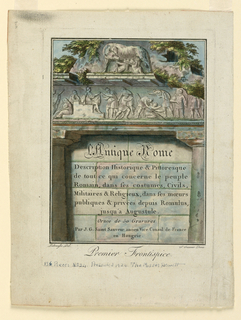 L'Antique Rome
Description Historique & Pittoresque
de tout ce qui concerne le peuple
Romain, dans ses costumes, Civils,
Militaires & Religieux, dans ses mœurs
publiques & privées depuis Romulus,
jusqu'à Augustule.
Orné de 50 Gravures
Par J. G. Saint Sauveur, ancien Vice Consul de France
en Hongrie.
Premier Frontispice